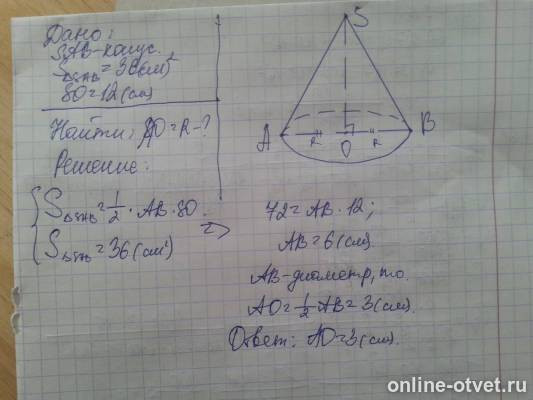 Дано:
SAB-конус.
S△SAB=36(см)²
SO=12(см)
Найти: AO=R-?
Решение:
S△SAB=1/2·AB·SO.
S△SAB=36(см²)
=>
72=AB·12;
AB=6(см).
AB-диаметр, то
AO=1/2 AB=3(см).
Ответ: AO=3(см).
S
A
B
O
R
R
online-otvet.ru